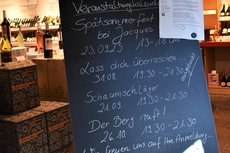 Veranstaltungskalender
Spätsommerfest
bei Jacques
23.09.23 13-18 Uhr
Lass dich überraschen...
31.08. 19.30 - 21.30
Schaumschläger
21.09. 19.30 - 21.30
Der Berg ruft!
26.10 19.30 - 21.30
Wir freuen uns auf Ihre Anmeldung...